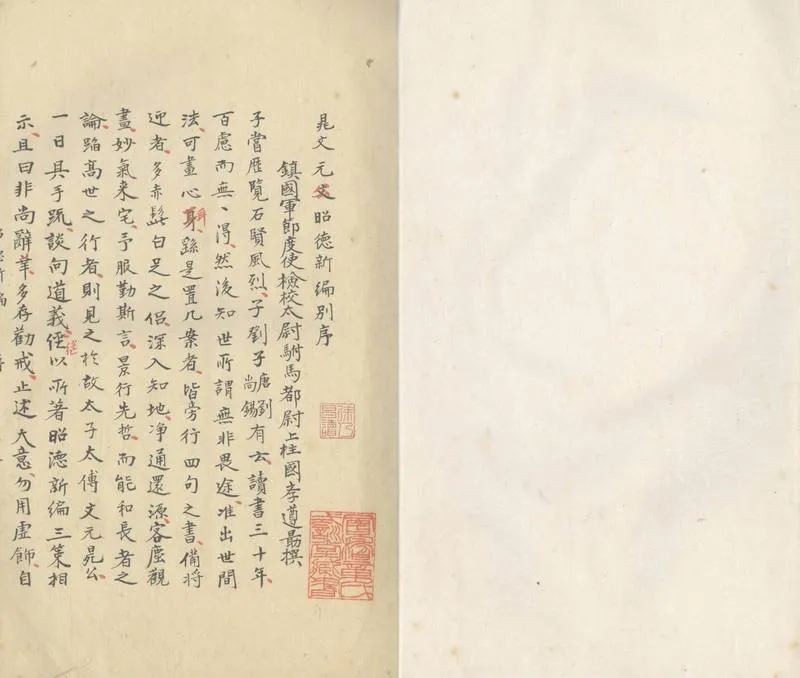 晁文元公昭德新編別序
鎮國軍節度使檢校太尉駙馬都尉上柱國李遵勗撰
予嘗歷覽古賢風烈予劉子唐劉尚錫有云讀書三十年
百慮而無、得然後知世所謂無非畏途准出世間
法可盡心耳繇是置几案者皆旁行四句之書備將
迎者多赤髭白足之侶深入知地净通還源客塵觀
盡妙氣来宅予服勤斯言景行先哲而能和長者之
論蹈髙世之行者則見之於故太子太傅文元晁公
一日具手䟽談向道義徑以所著昭德新編三策相
示且曰非尚辭華多存勸戒止述大意勿用虛飾自